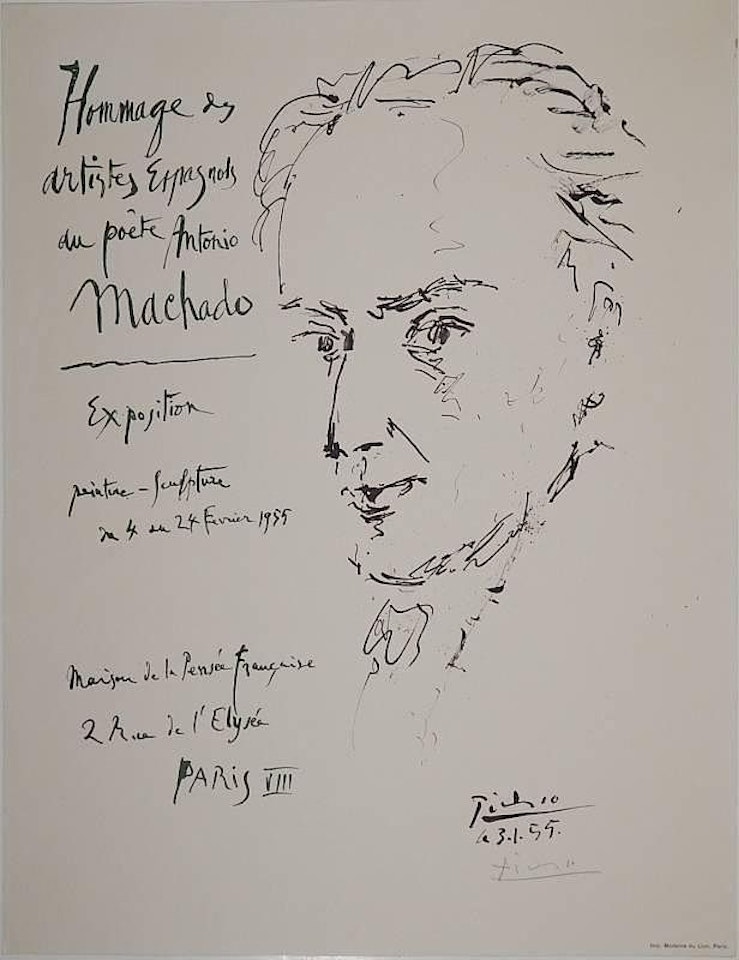 Hommage des
artistes Espagnols
au poète Antonio
Machado
Exposition
peinture - Sculpture
du 4 au 24 Février 1955
Maison de la Pensée Française
2 Rue de l'Elysée
PARIS VIII
Picasso
le 3.1.55.
Picasso
Imp. Moderne du Lion, Paris.